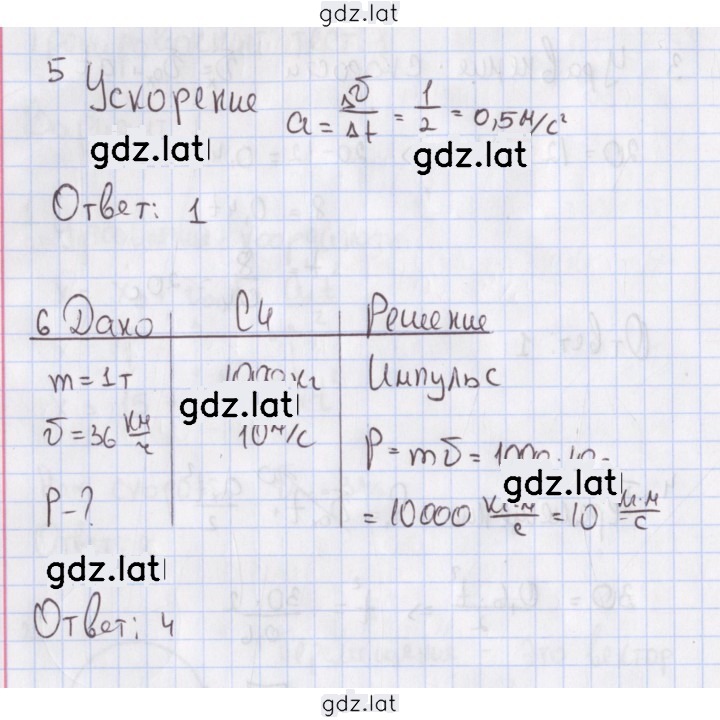 gdz.lat
5 Ускорение a = Δυ/Δt = 1/2 = 0,5 м/с²
gdz.lat
gdz.lat
Ответ: 1
6 Дано СИ Решение
m = 1 т 1000 кг Импульс
gdz.lat
υ = 36 км/ч 10 м/с
P = mυ = 1000 · 10 =
gdz.lat
P - ? = 10000 кг·м/с = 10
gdz.lat
Ответ: 4
gdz.lat